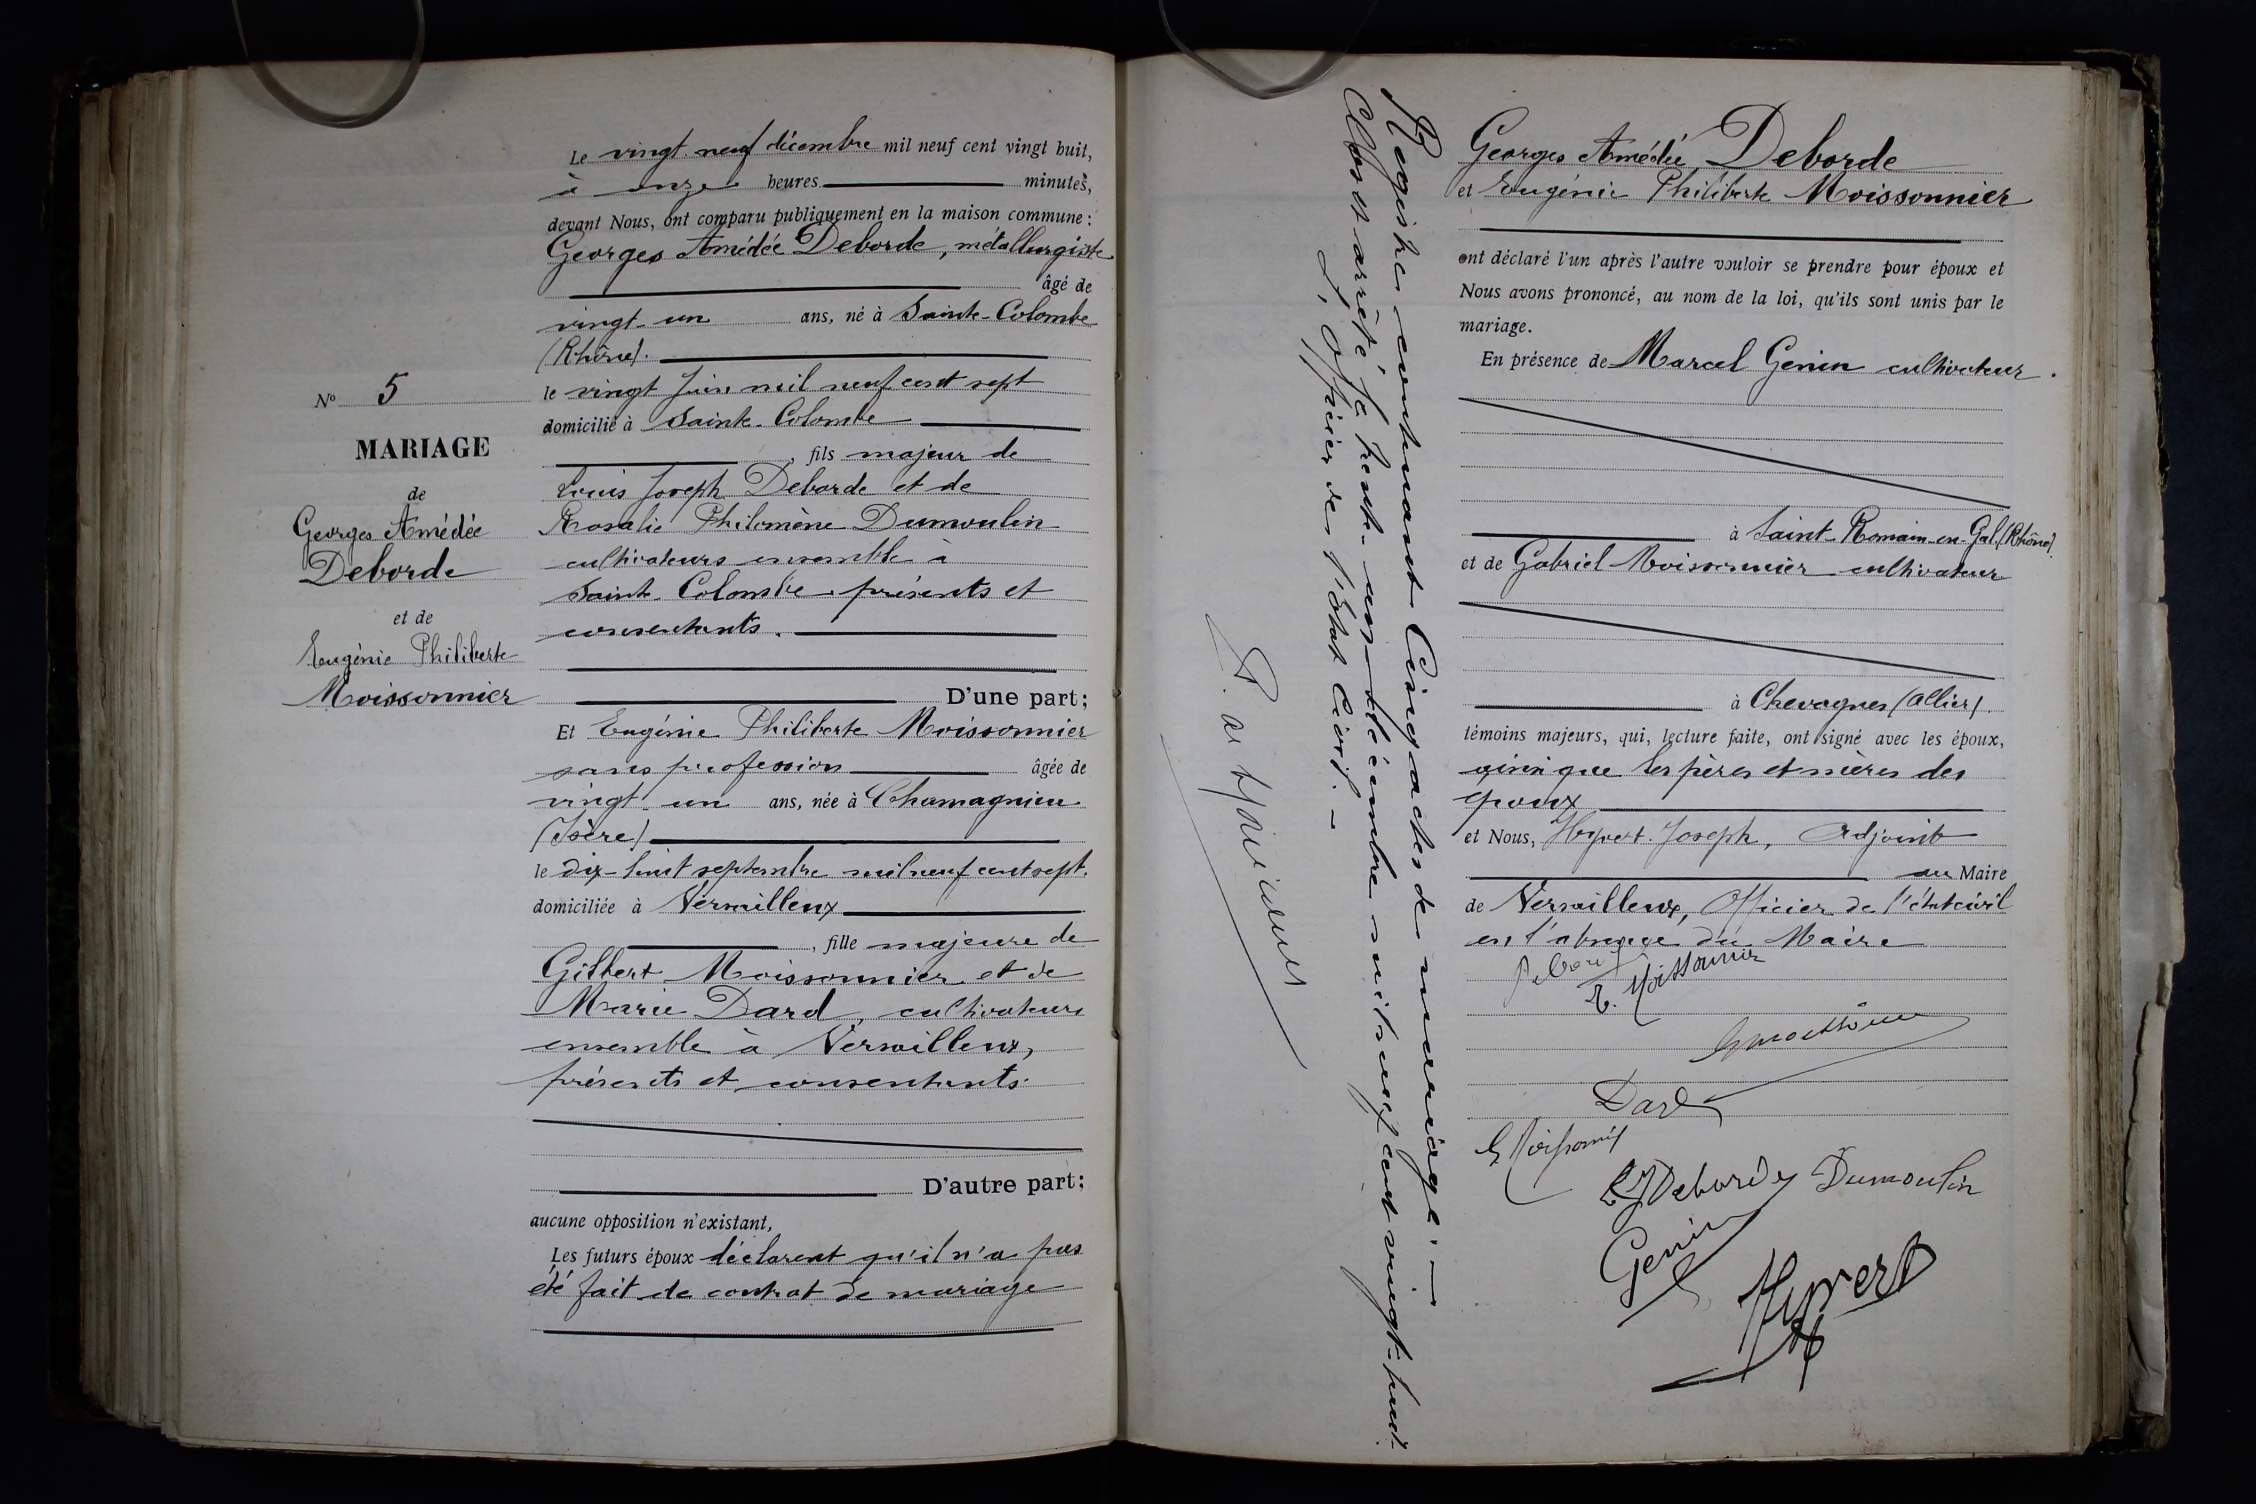 Le vingt neuf décembre mil neuf cent vingt huit,
à onze heures minutes,
devant Nous, ont comparu publiquement en la maison commune :
Georges Amédée Deborde, métallurgiste
âgé de
vingt-un ans, né à Sainte-Colombe
(Rhône).
le vingt Juin mil neuf cent sept
domicilié à Sainte-Colombe
, fils majeur de
Louis Joseph Deborde et de
Rosalie Philomène Dumoulin
cultivateurs ensemble à
Sainte-Colombe présents et
consentants.
D'une part;
N° 5
MARIAGE
de
Georges Amédée
Deborde
et de
Eugénie Philiberte
Moissonnier
Et Eugénie Philiberte Moissonnier
sans profession âgée de
vingt un ans, née à Chamagnieu
(Isère)
le dix-huit septembre mil neuf cent sept.
domiciliée à
, fille majeure de
Gilbert Moissonnier et de
Marie Dard, cultivateurs
ensemble à
présents et consentants.
D'autre part;
aucune opposition n'existant,
Les futurs époux déclarent qu'il n'a pas
été fait de contrat de mariage
Registre contenant Cinq actes de mariage. —
Clos et arrêté le trente-un décembre mil neuf cent vingt-huit.
L'Officier de l'Etat Civil. —
Georges Amédée Deborde
et Eugénie Philiberte Moissonnier
ont déclaré l'un après l'autre vouloir se prendre pour époux et
Nous avons prononcé, au nom de la loi, qu'ils sont unis par le
mariage.
En présence de Marcel Genin cultivateur.
à Saint-Romain-en-Gal (Rhône)
et de Gabriel Moissonnier cultivateur
à Chevagnes (Allier).
témoins majeurs, qui, lecture faite, ont signé avec les époux,
ainsi que les pères et mères des
époux
et Nous, Hyvert Joseph, Adjoint
au Maire
de Officier de l'état civil
en l'absence du Maire
E. Moissonnier
Dard
LJ Deborde Dumoulin
Genin
Hyvert